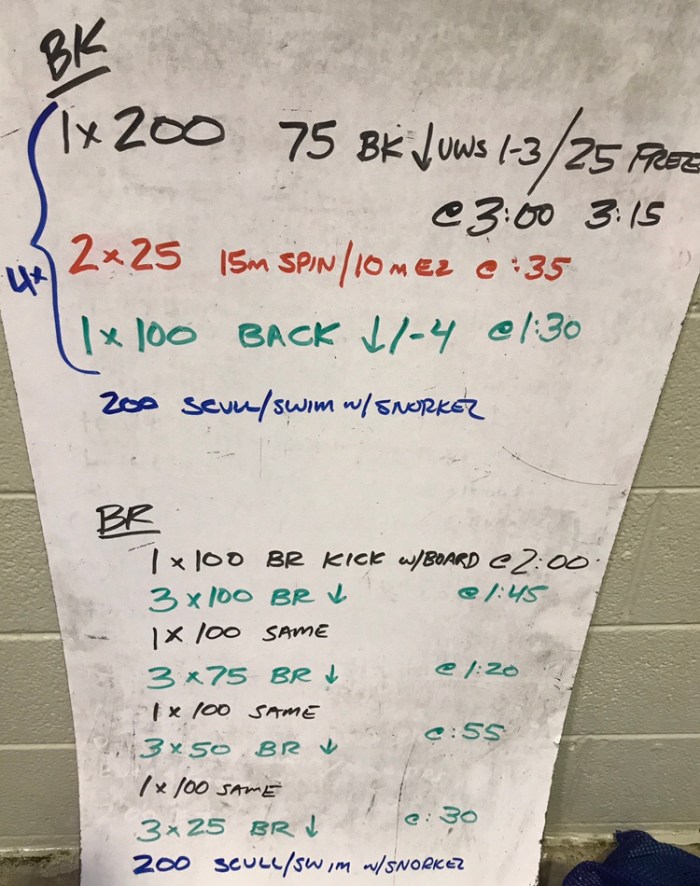 BK
1x200 75 BK ↓UWS 1-3/25 FREE
@3:00 3:15
4x
2x25 15m SPIN/10m EZ @:35
1x100 BACK ↓1-4 @1:30
200 SCULL/SWIM W/SNORKEL
BR
1x100 BR KICK W/BOARD @2:00
3x100 BR ↓ @1:45
1x100 SAME
3x75 BR ↓ @1:20
1x100 SAME
3x50 BR ↓ @:55
1x100 SAME
3x25 BR ↓ @:30
200 SCULL/SWIM W/SNORKEL